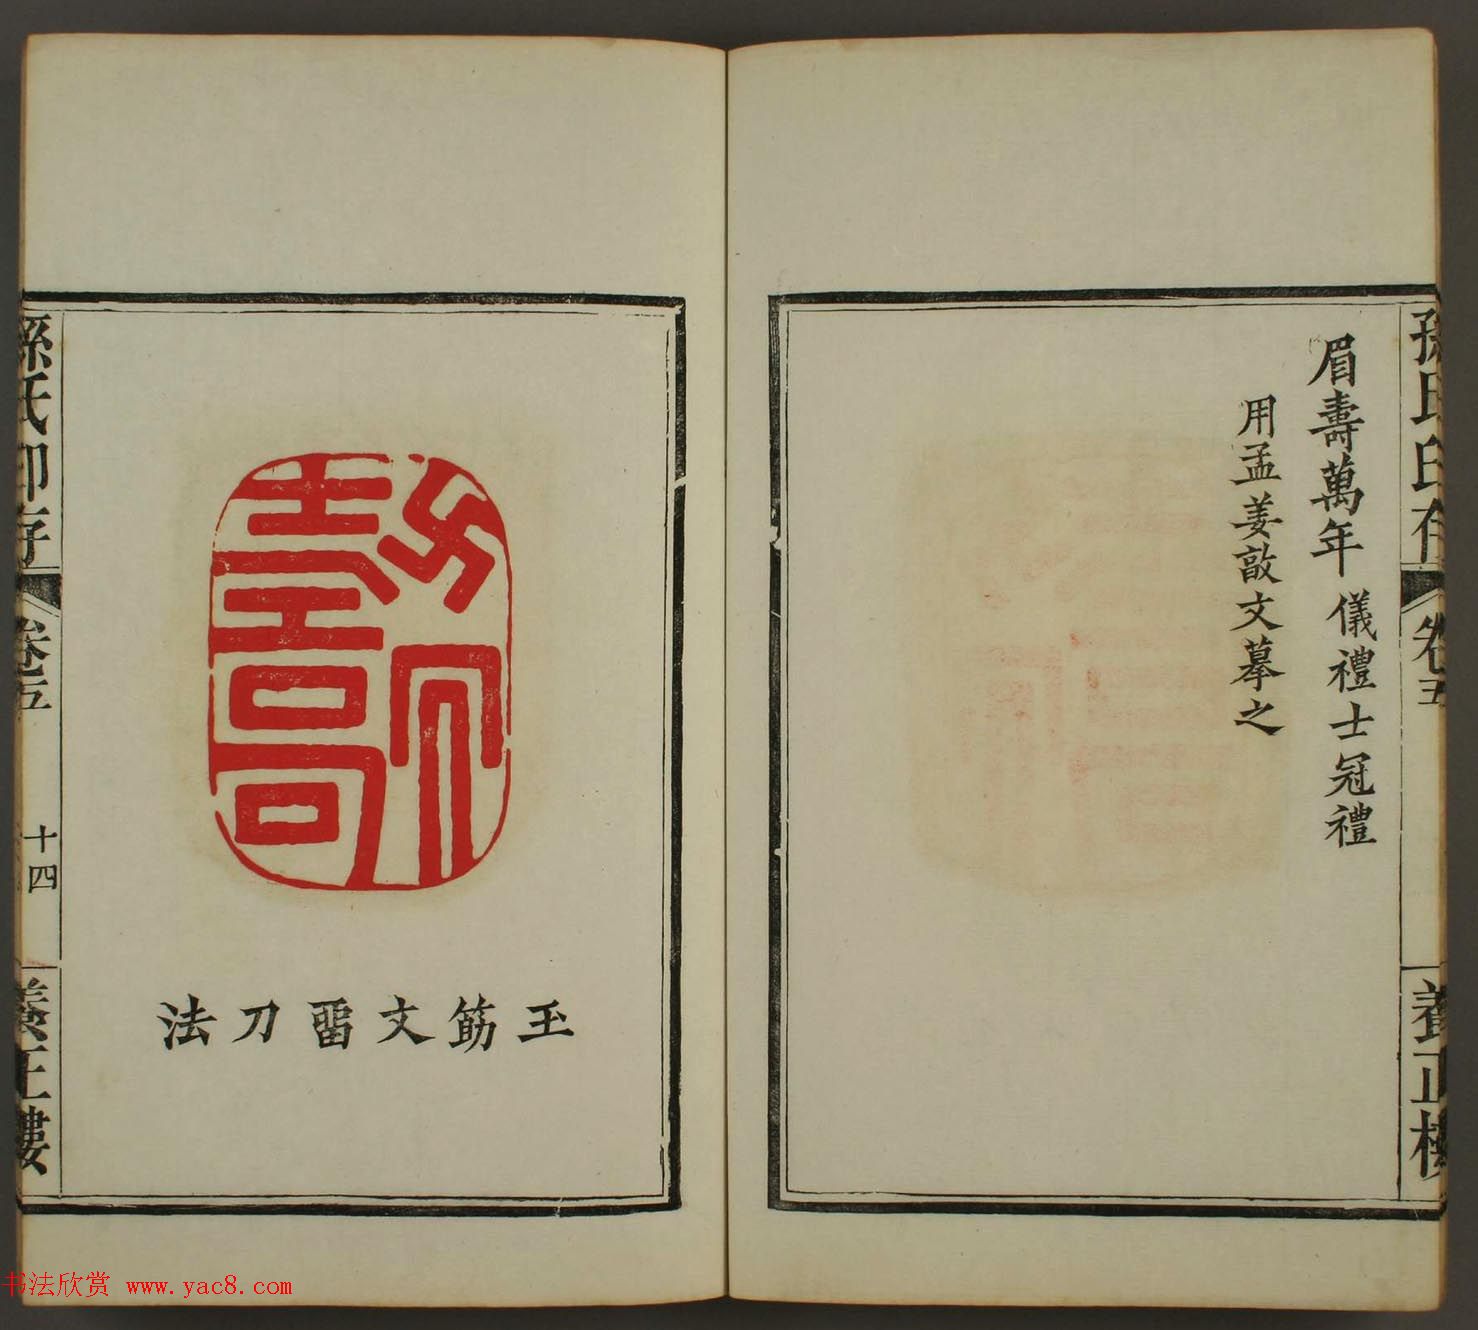 孫氏印存
卷五
養正樓
眉壽萬年 儀禮士冠禮
用孟姜敦文摹之
玉筯文畱刀法
孫氏印存
卷五
十四
養正樓
书法欣赏 www.yac8.com